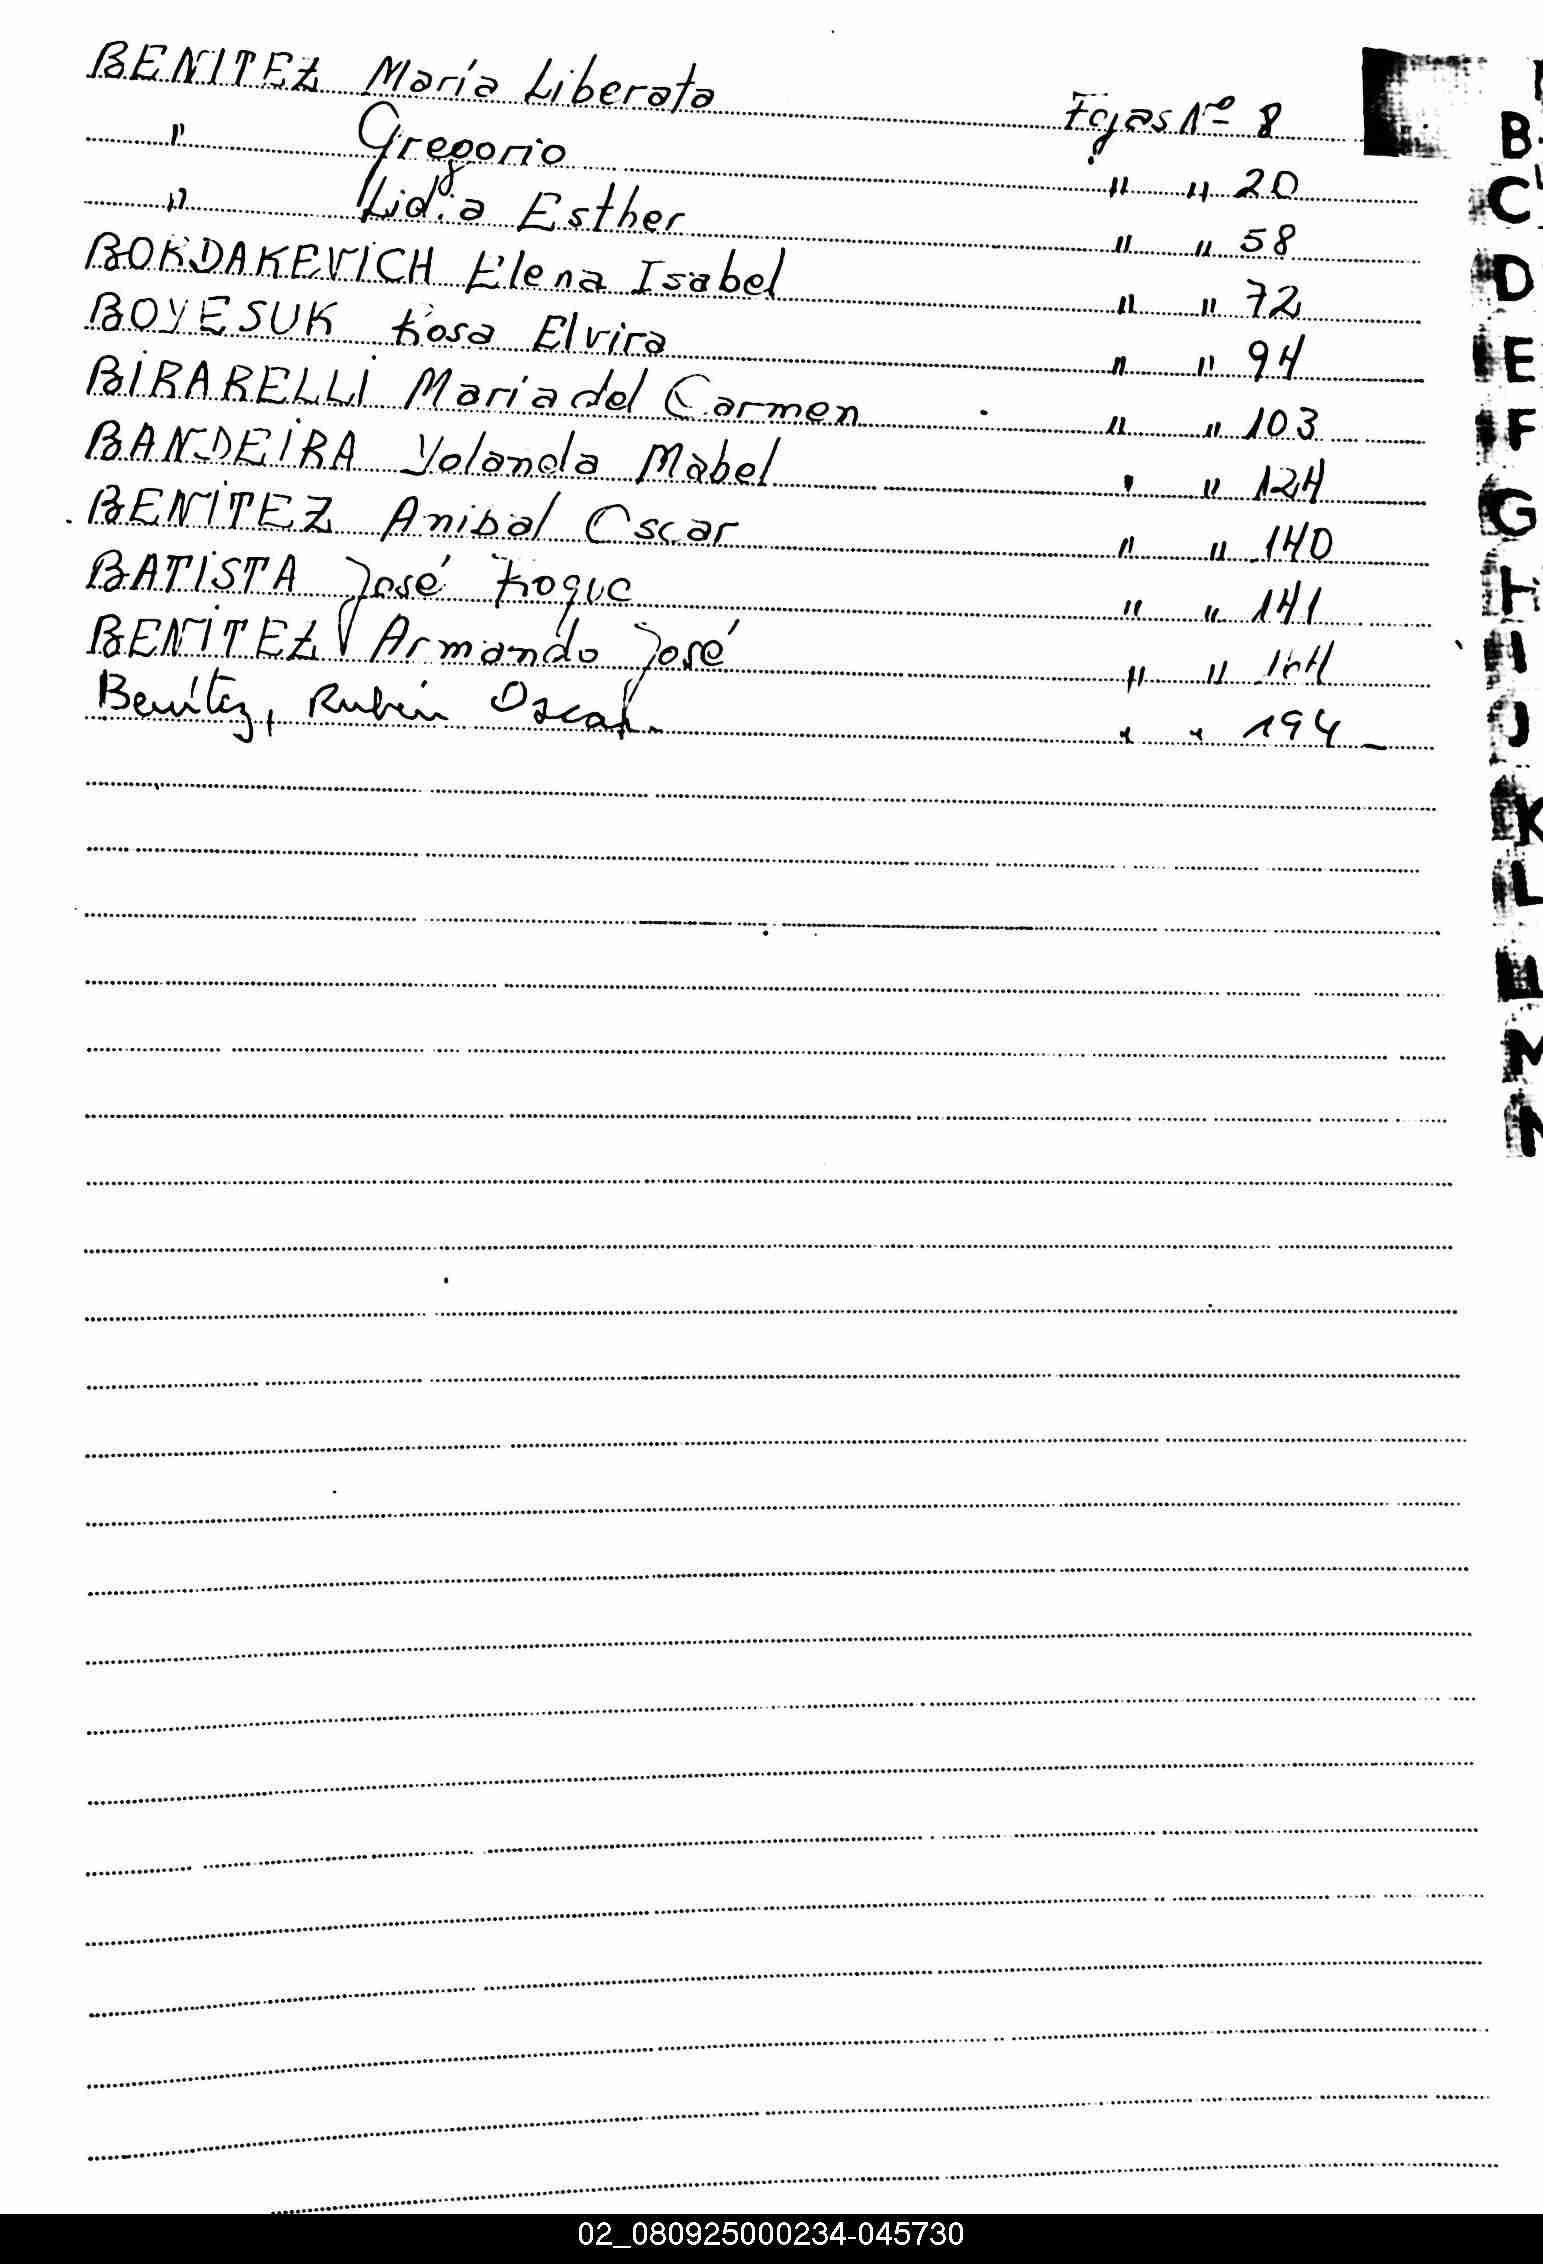 BENITEZ María Liberata Fojas Nº 8
" Gregorio " " 20
" Lidia Esther " " 58
BORDAKEVICH Elena Isabel " " 72
BOYESUK Rosa Elvira " " 94
BIRARELLI Maria del Carmen " " 103
BANDEIRA Yolanda Mabel " " 124
BENITEZ Anibal Oscar " " 140
BATISTA José Roque " " 141
BENITEZ Armando José " "
Benítez, Rubén Oscar. " " 194
B
C
D
E
F
G
H
I
J
K
L
LL
M
N
02_080925000234-045730